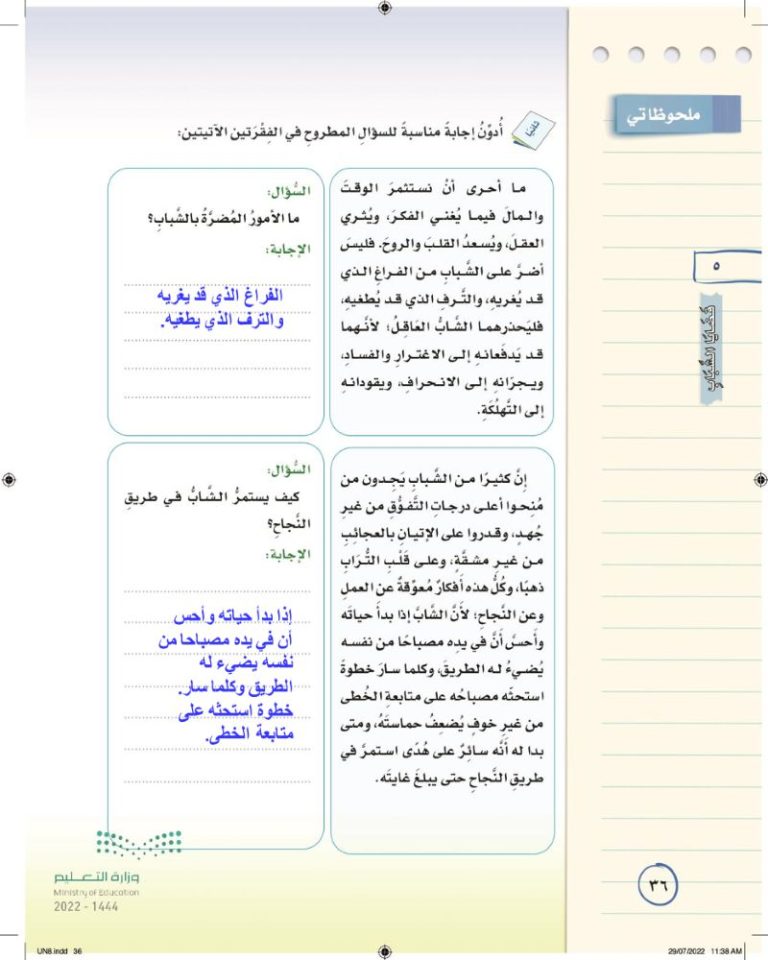 ملحوظاتي
٥
قضايا الشباب
ثانيًا
أُدوِّنُ إجابةً مناسبةً للسؤالِ المطروحِ في الفِقْرَتين الآتيتين:
ما أحرى أنْ نستثمرَ الوقتَ
والمالَ فيما يُغني الفكرَ، ويُثري
العقلَ، ويُسعدُ القلبَ والروحَ. فليسَ
أضرَّ على الشَّبابِ من الفراغِ الذي
قد يُغريهِ، والتَّرفِ الذي قد يُطغيهِ،
فليَحذرهما الشَّابُّ العاقلُ؛ لأنَّهما
قد يَدفعَانهِ إلى الاغترارِ والفسادِ،
ويجرّانهِ إلى الانحرافِ، ويقودانهِ
إلى التَّهلُكَةِ.
السُّؤال:
ما الأمورُ المُضرَّةُ بالشَّبابِ؟
الإجابة:
الفراغ الذي قد يغريه
والترف الذي يطغيه.
إنَّ كثيرًا من الشَّبابِ يَجِدون من
مُنِحوا أعلى درجاتِ التَّفوُّقِ من غيرِ
جُهدٍ، وقدروا على الإتيانِ بالعجائبِ
من غيرِ مشقَّةٍ، وعلى قَلْبِ التُّرابِ
ذهبًا، وكُلُّ هذه أفكارٌ مُعوِّقةٌ عن العملِ
وعن النَّجاحِ؛ لأنَّ الشَّابَّ إذا بدأ حياتَه
وأحسَّ أنَّ في يدِه مصباحًا من نفسه
يُضيءُ له الطريقَ، وكلما سارَ خطوةً
استحثَّه مصباحُه على متابعةِ الخُطى
من غيرِ خوفٍ يُضعِفُ حماستَهُ، ومتى
بدا له أنَّه سائرٌ على هُدًى استمرَّ في
طريقِ النَّجاحِ حتى يبلغَ غايتَه.
السُّؤال:
كيف يستمرُّ الشَّابُّ في طريقِ
النَّجاحِ؟
الإجابة:
إذا بدأ حياته وأحس
أن في يده مصباحا من
نفسه يضيء له
الطريق وكلما سار.
خطوة استحثه على
متابعة الخطى.
وزارة التعليم
Ministry of Education
2022 - 1444
٣٦
UN8.indd 36
29/07/2022 11:38 AM